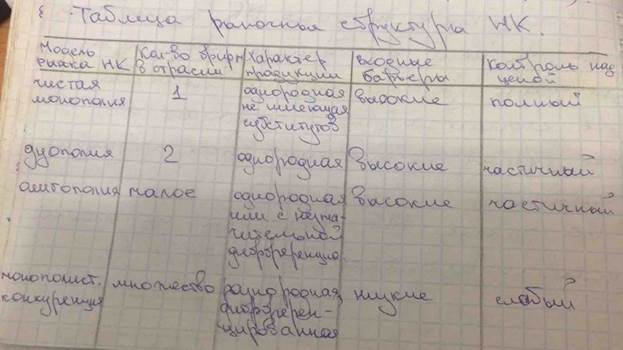 Таблица рыночная структура НК.
Модель рынка НК | Кол-во фирм в отрасли | Характер продукции | входные барьеры | контроль над ценой
чистая монополия | 1 | однородная не имеющая субститутов | высокие | полный
дуополия | 2 | однородная | высокие | частичный
олигополия | малое | однородная или с незначительной дифференцио. | высокие | частичный
монополист. конкуренция | множество | разнородная, дифференцированная | низкие | слабый